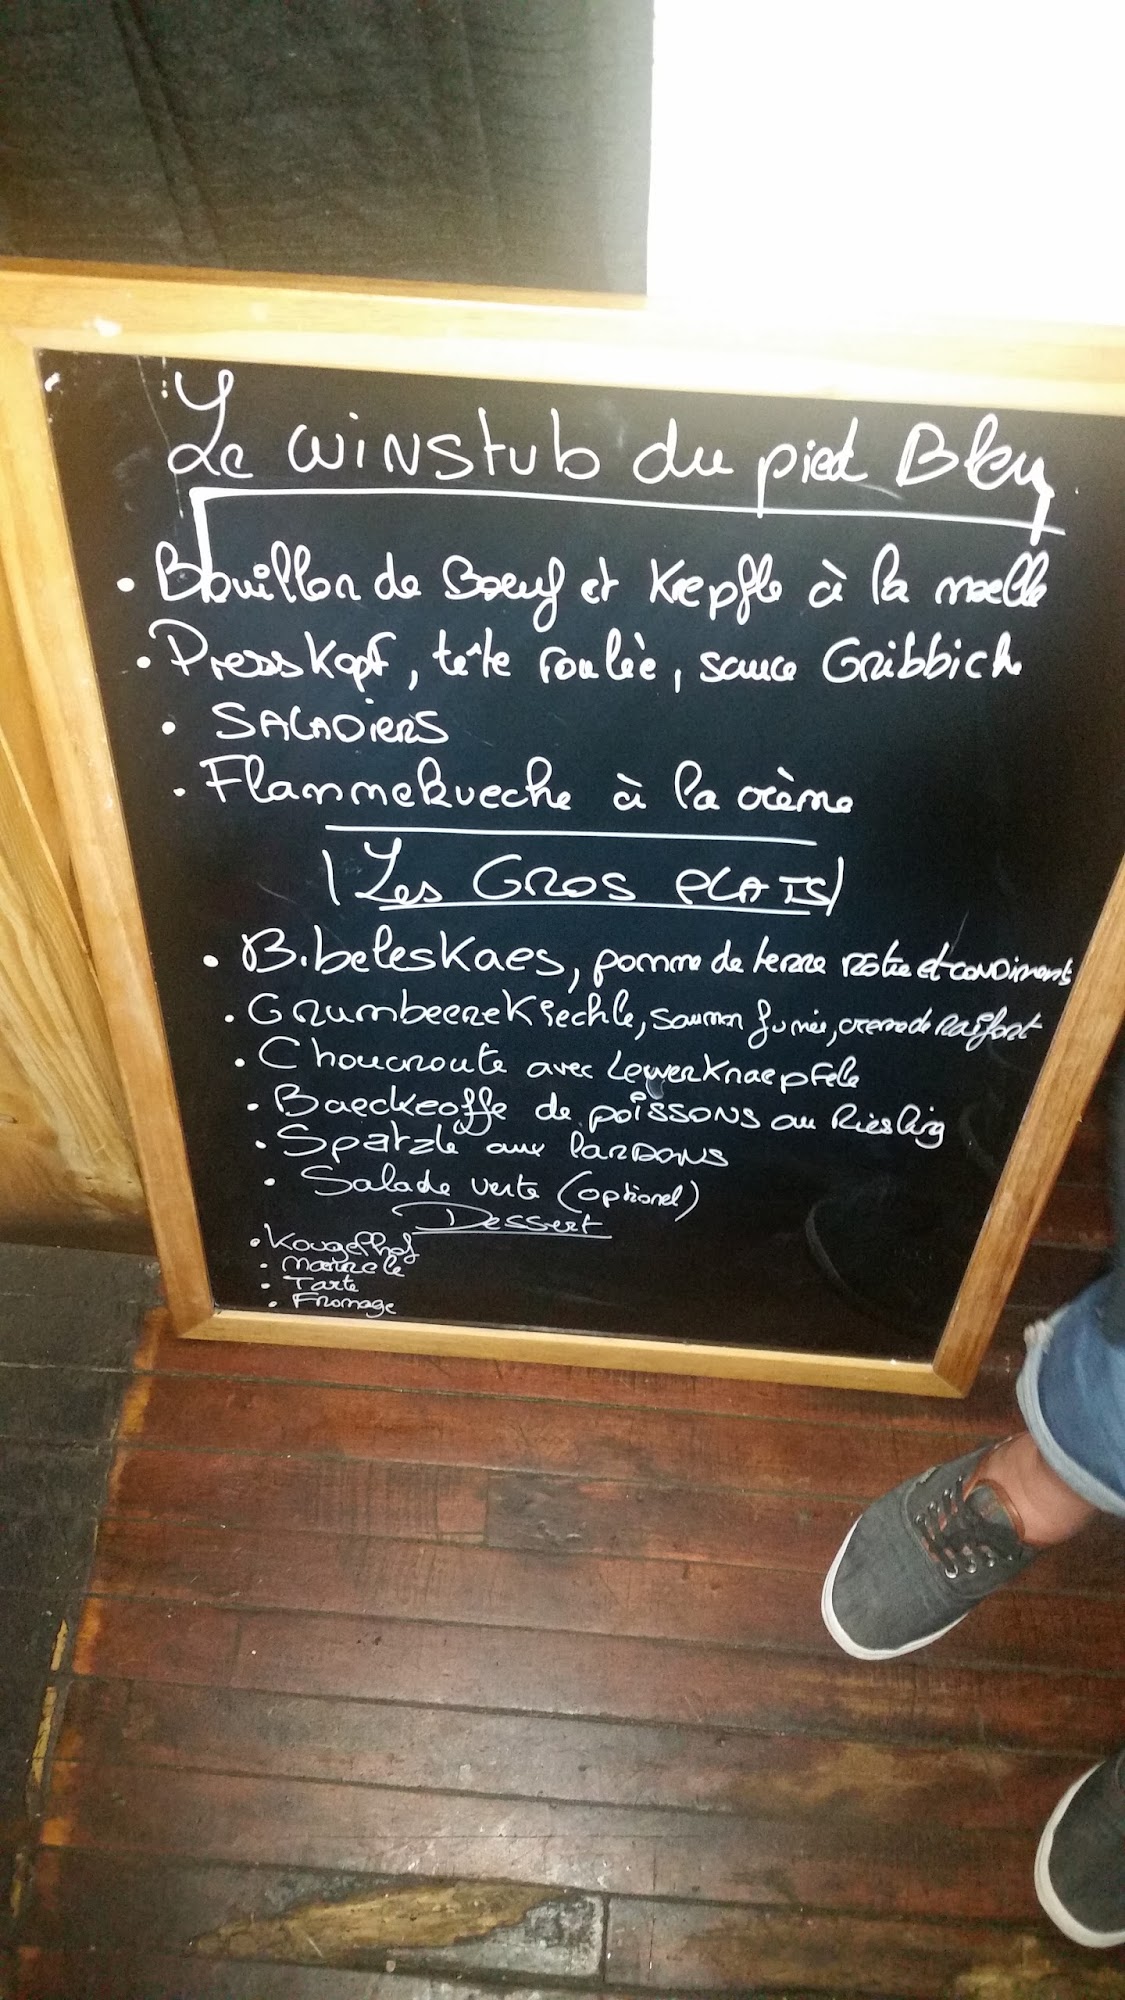 Le winstub du pied Bleu
• Bouillon de Boeuf et Knepfle à la moelle
• Presskopf, tête roulée, sauce Gribbich
• SALADIERS
• Flammekueche à la crème
Les GROS PLATS
• Bibeleskaes, pomme de terre rôtie et condiments
• Grumbeerekiechle, saumon fumée, creme de Raifort
• Choucroute avec Lewerknaepfele
• Baeckeoffe de poissons au Riesling
• Spatzle aux lardons
• Salade verte (optionel)
Dessert
• Kougelhof
• Tarte
• Fromage